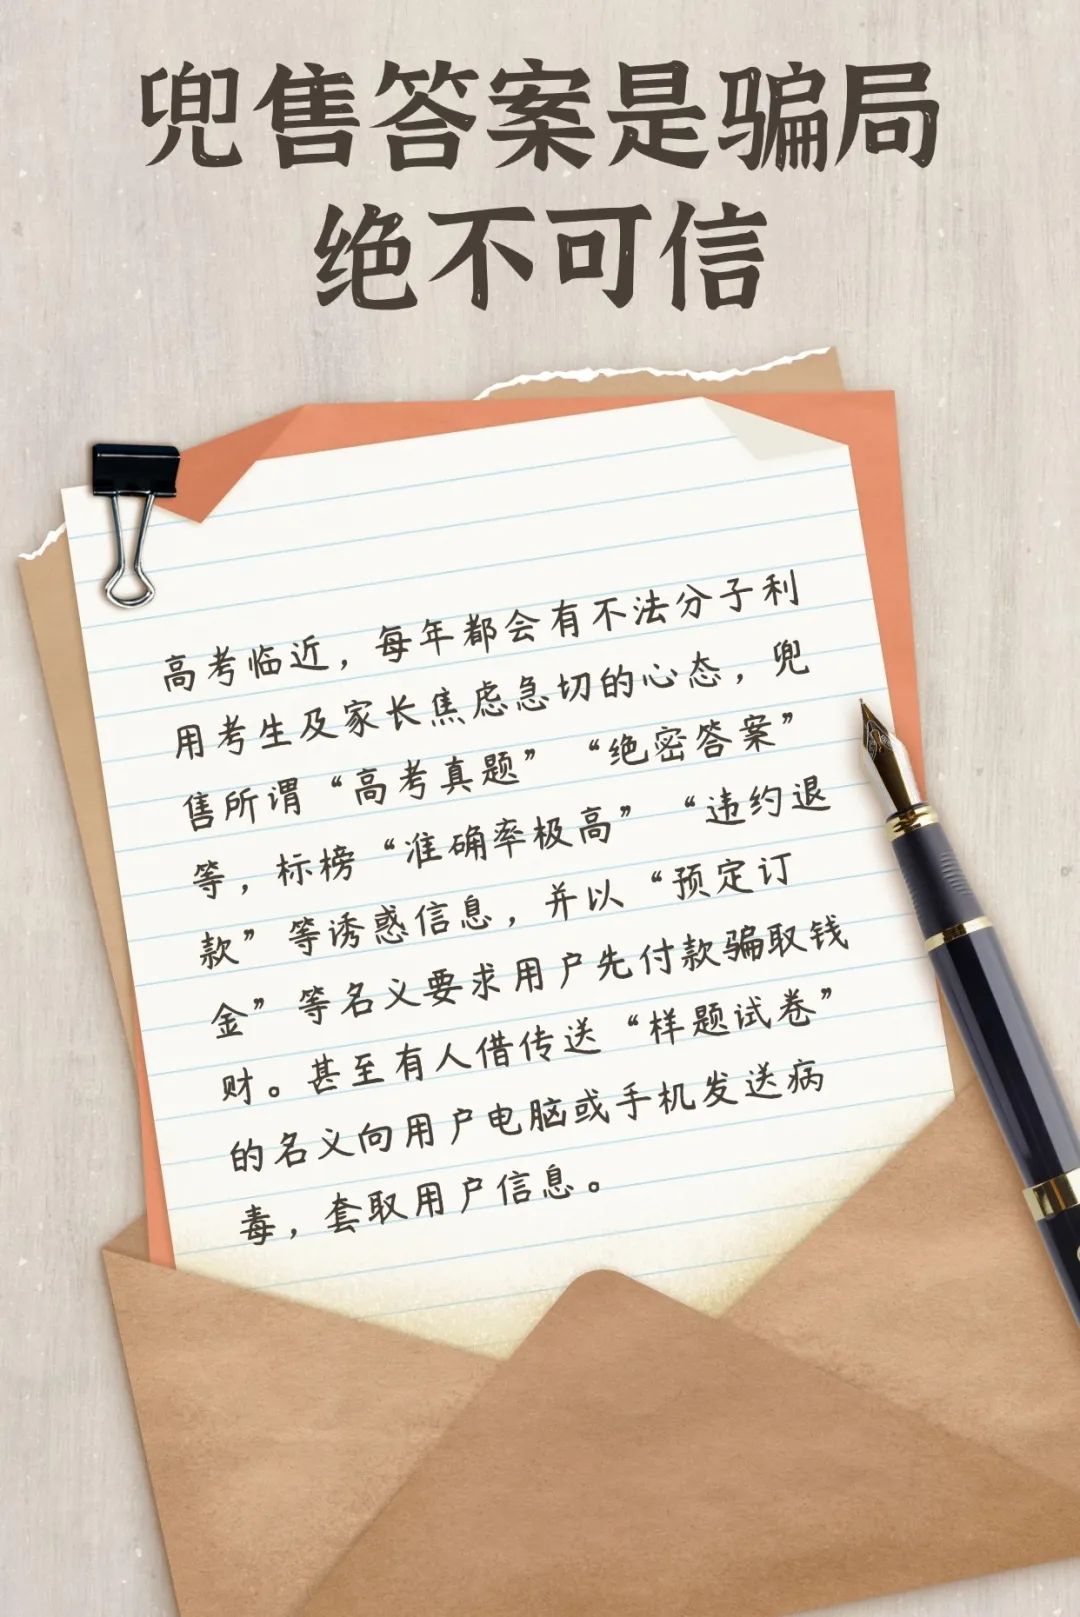 兜售答案是骗局
绝不可信
高考临近，每年都会有不法分子利
用考生及家长焦虑急切的心态，兜
售所谓“高考真题”“绝密答案”
等，标榜“准确率极高”“违约退
款”等诱惑信息，并以“预定订
金”等名义要求用户先付款骗取钱
财。甚至有人借传送“样题试卷”
的名义向用户电脑或手机发送病
毒，套取用户信息。